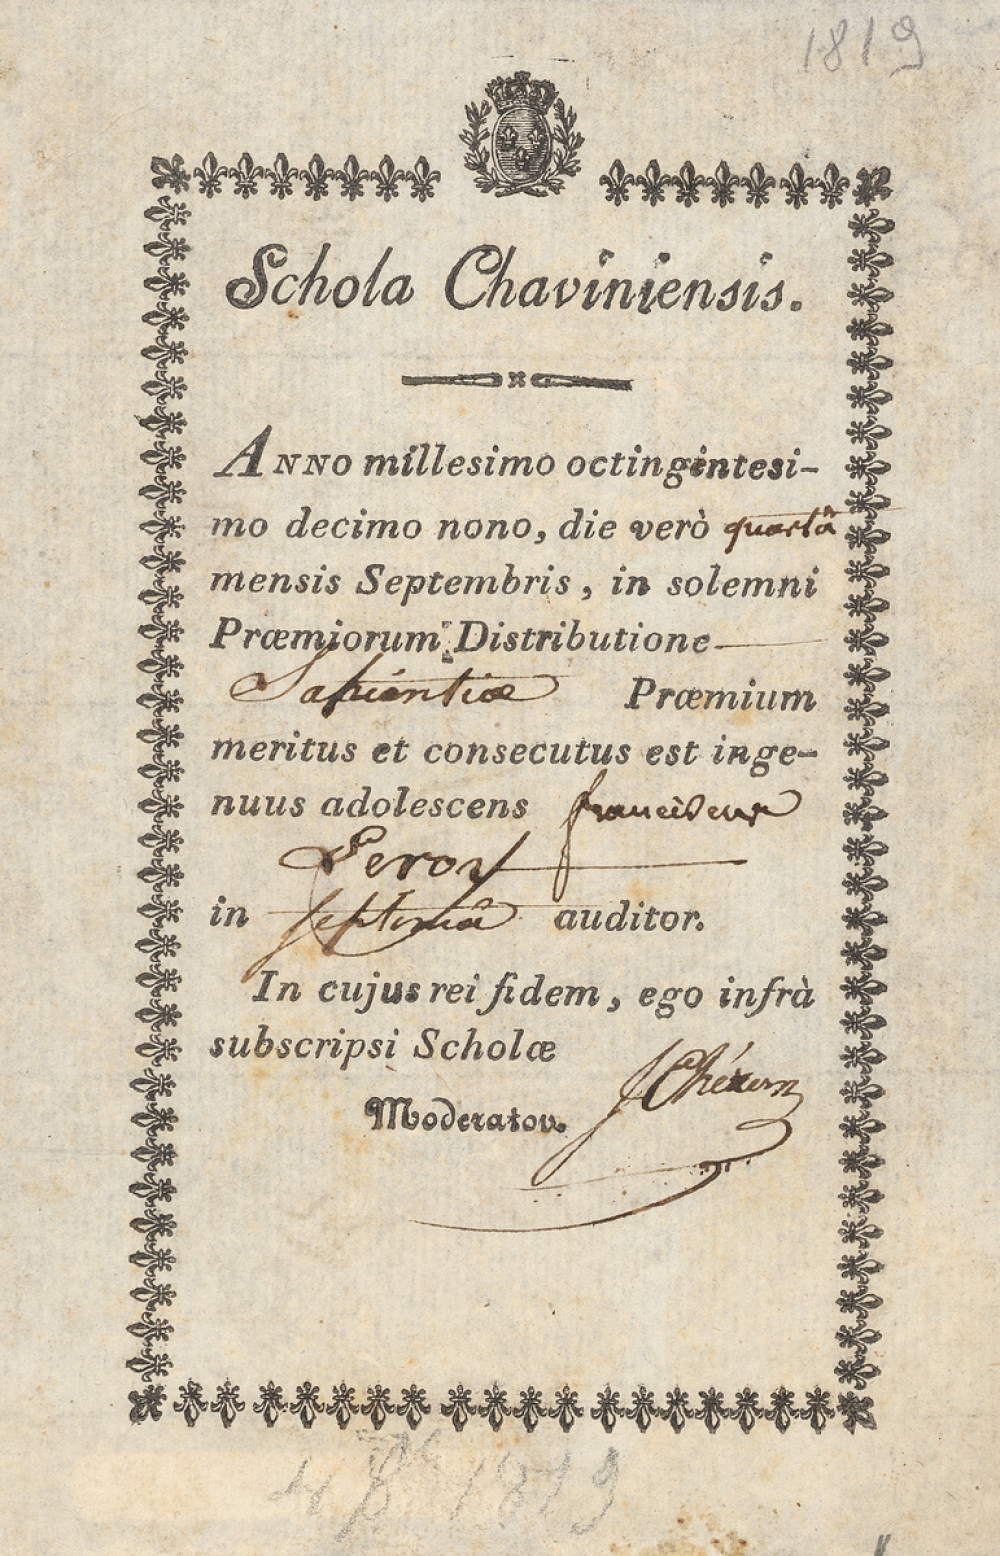 1819
Schola Chaviniensis.
ANNO millesimo octingintesi-
mo decimo nono, die verò quartâ
mensis Septembris, in solemni
Præmiorum Distributione
Sapientiæ Præmium
meritus et consecutus est inge-
nuus adolescens franciscus
Leroy
in septimâ auditor.
In cujus rei fidem, ego infrà
subscripsi Scholæ
Moderator.
1819